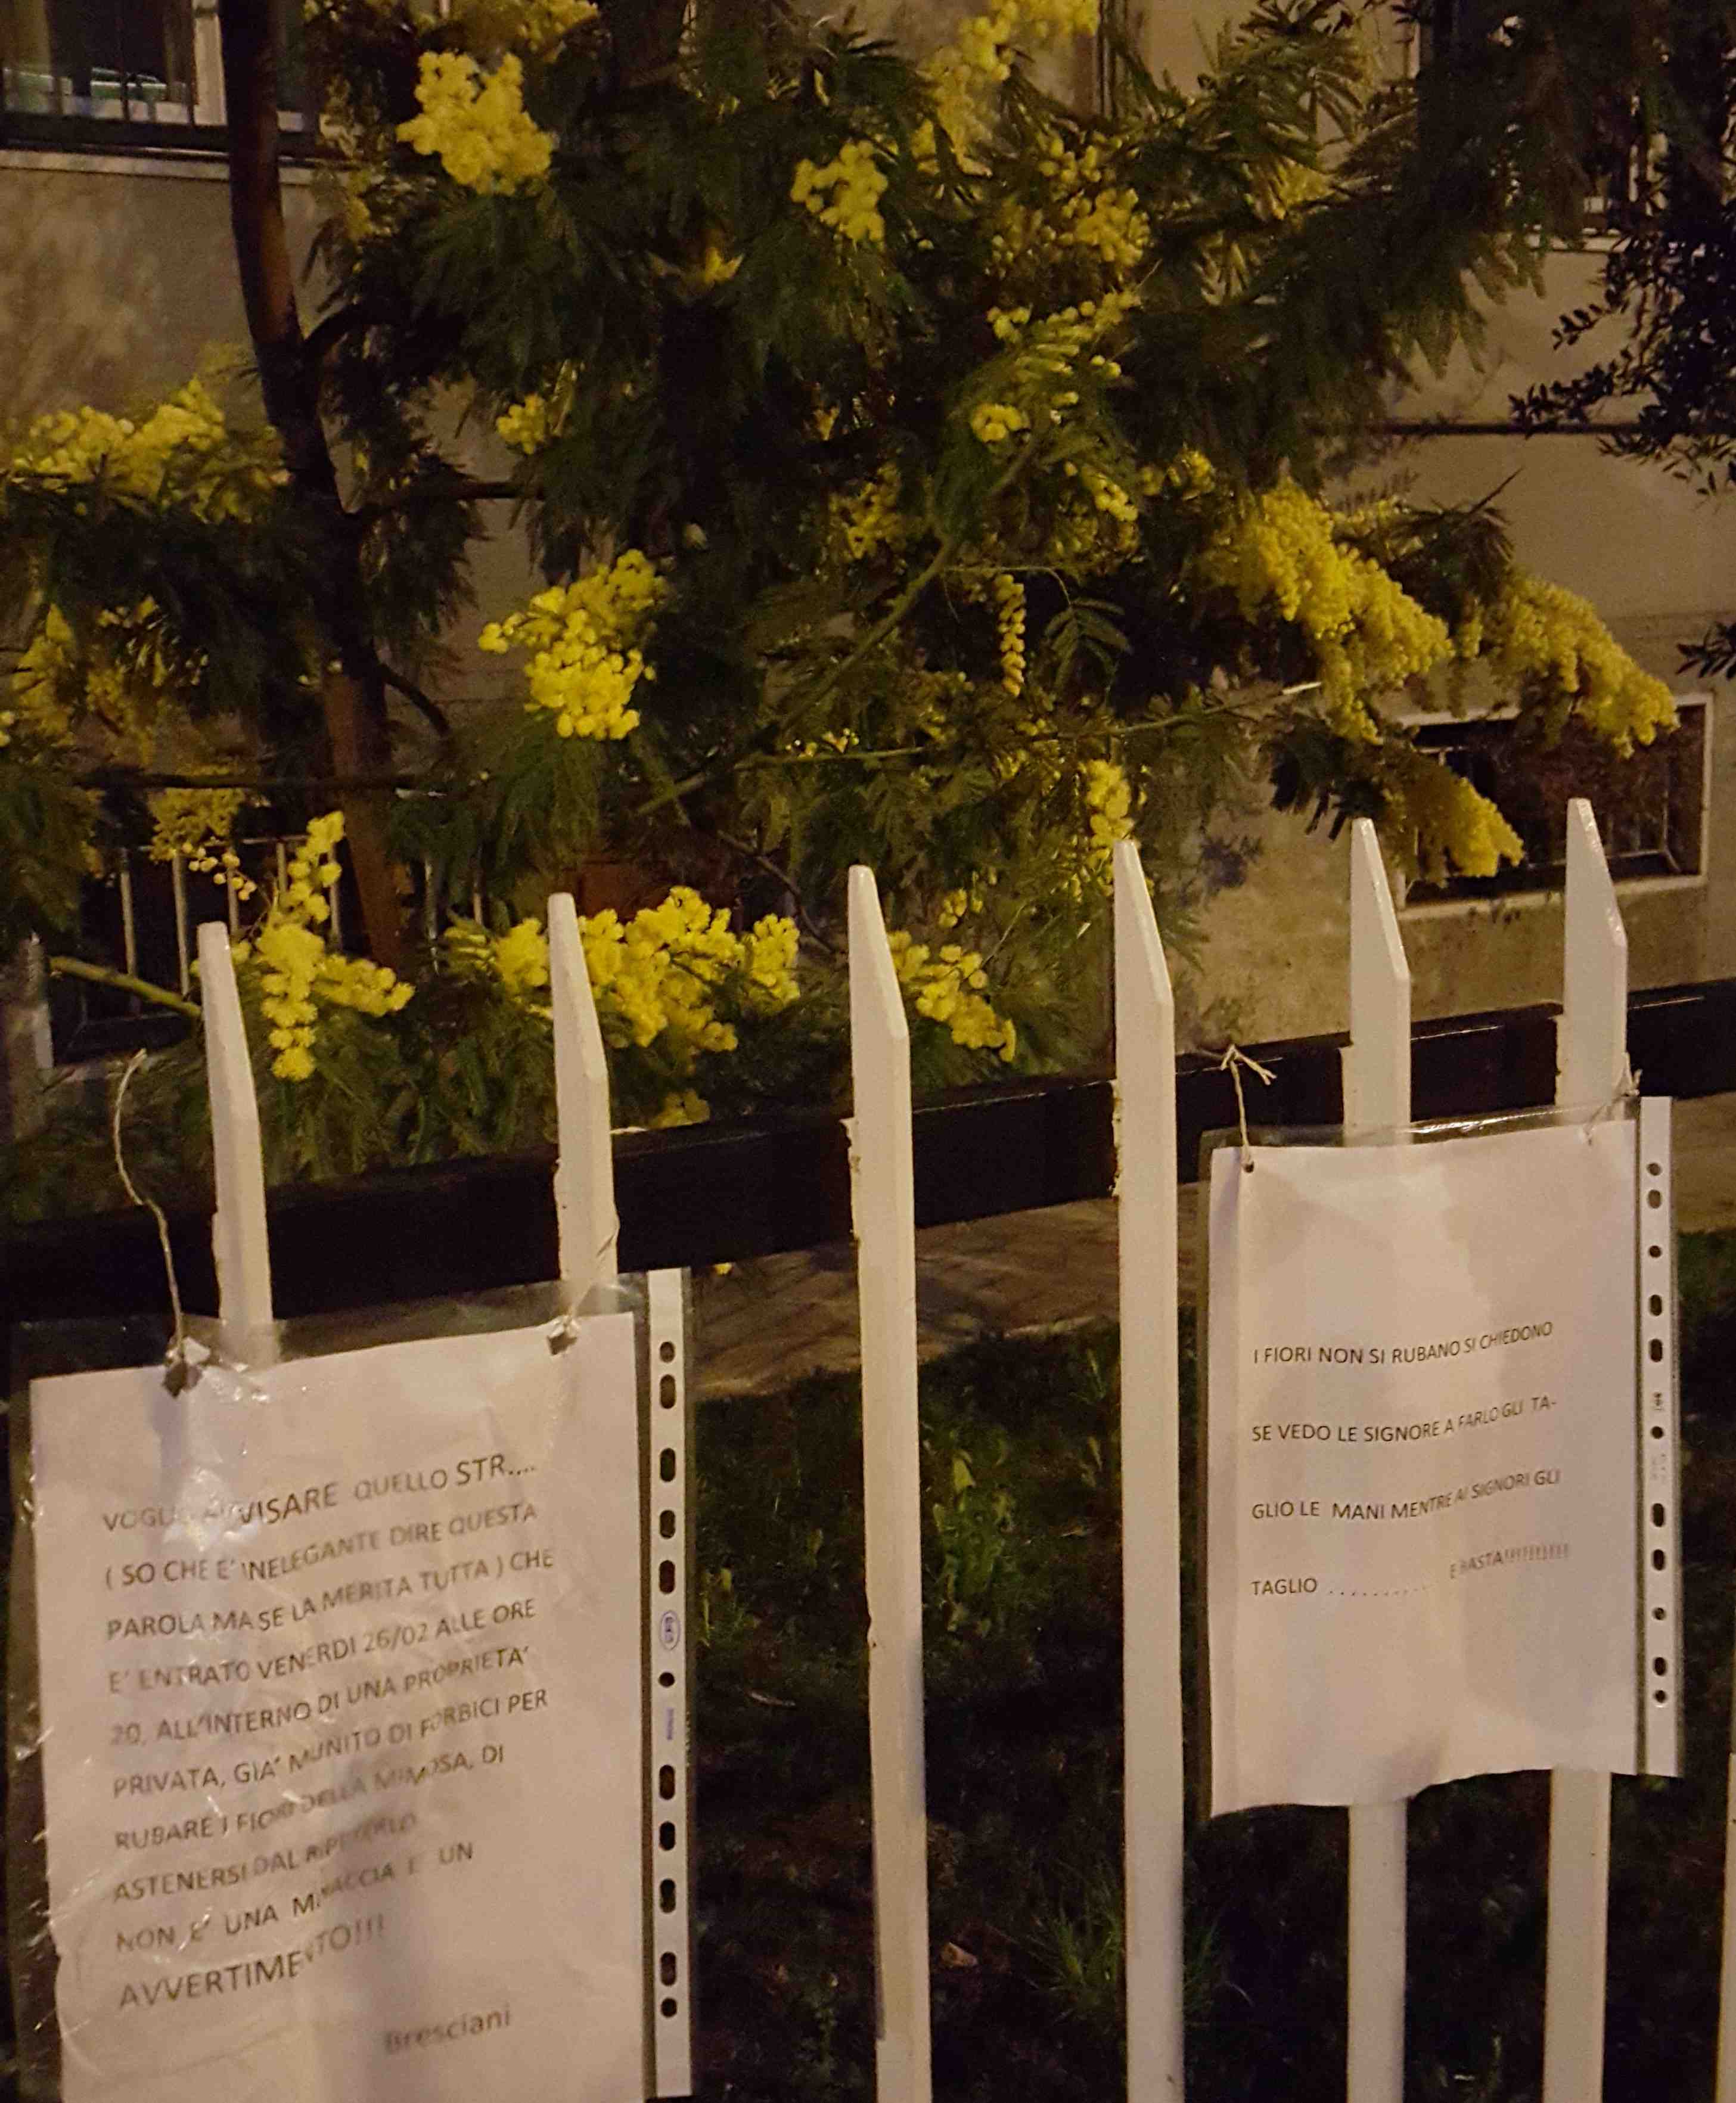 VOGLIO AVVISARE QUELLO STR....
( SO CHE E' INELEGANTE DIRE QUESTA
PAROLA MA SE LA MERITA TUTTA ) CHE
E' ENTRATO VENERDI 26/02 ALLE ORE
20, ALL'INTERNO DI UNA PROPRIETA'
PRIVATA, GIA' MUNITO DI FORBICI PER
RUBARE I FIORI DELLA MIMOSA, DI
ASTENERSI DAL RIPETERLO
NON E' UNA MINACCIA E' UN
AVVERTIMENTO!!!
Bresciani
I FIORI NON SI RUBANO SI CHIEDONO
SE VEDO LE SIGNORE A FARLO GLI TA-
GLIO LE MANI MENTRE AI SIGNORI GLI
TAGLIO .......... E BASTA!!!!!!!!!!